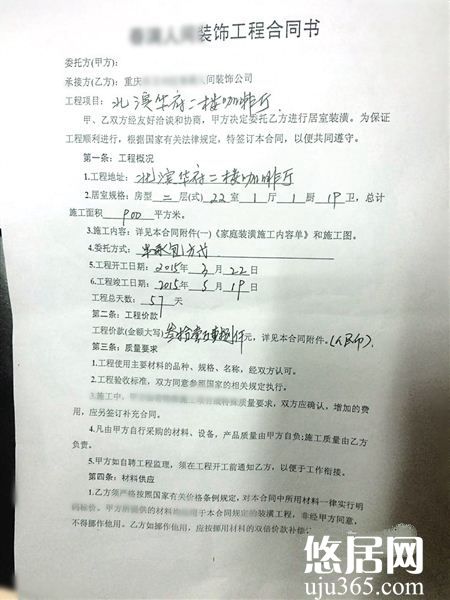 装饰工程合同书
委托方(甲方):
承接方(乙方): 重庆 人间装饰公司
工程项目: 北滨华府二楼咖啡厅
甲、乙双方经友好洽谈和协商,甲方决定委托乙方进行居室装潢。为保证
工程顺利进行,根据国家有关法律规定,特签订本合同,以便共同遵守。
第一条:工程概况
1.工程地址: 北滨华府二楼咖啡厅
2.居室规格: 房型 二 层(式) 22 室 1 厅 1 厨 19 卫,总计
施工面积 900 平方米。
3.施工内容: 详见本合同附件(一)《家庭装潢施工内容单》和施工图。
4.委托方式:
5.工程开工日期: 2015年 3 月 22 日
6.工程竣工日期: 2015年 5 月 19 日
工程总天数: 57 天
第二条:工程价款
工程价款(金额大写) 元,详见本合同附件。(人民币)
第三条:质量要求
1.工程使用主要材料的品种、规格、名称,经双方认可。
2.工程验收标准,双方同意参照国家的相关规定执行。
3.施工中, 质量要求,双方应确认,增加的费
用,应另签订补充合同。
4.凡由甲方自行采购的材料、设备,产品质量由甲方自负;施工质量由乙方
负责。
5.甲方如自聘工程监理,须在工程开工前通知乙方,以便于工作衔接。
第四条:材料供应
1.乙方须严格按照国家有关价格条例规定,对本合同中所用材料一律实行明
码标价。甲方所提供的材料均应用于本合同规定的装潢工程,非经甲方同意,
不得挪作他用。乙方如挪作他用,应按挪用材料的双倍价款补偿
1
悠居网
uju365.com